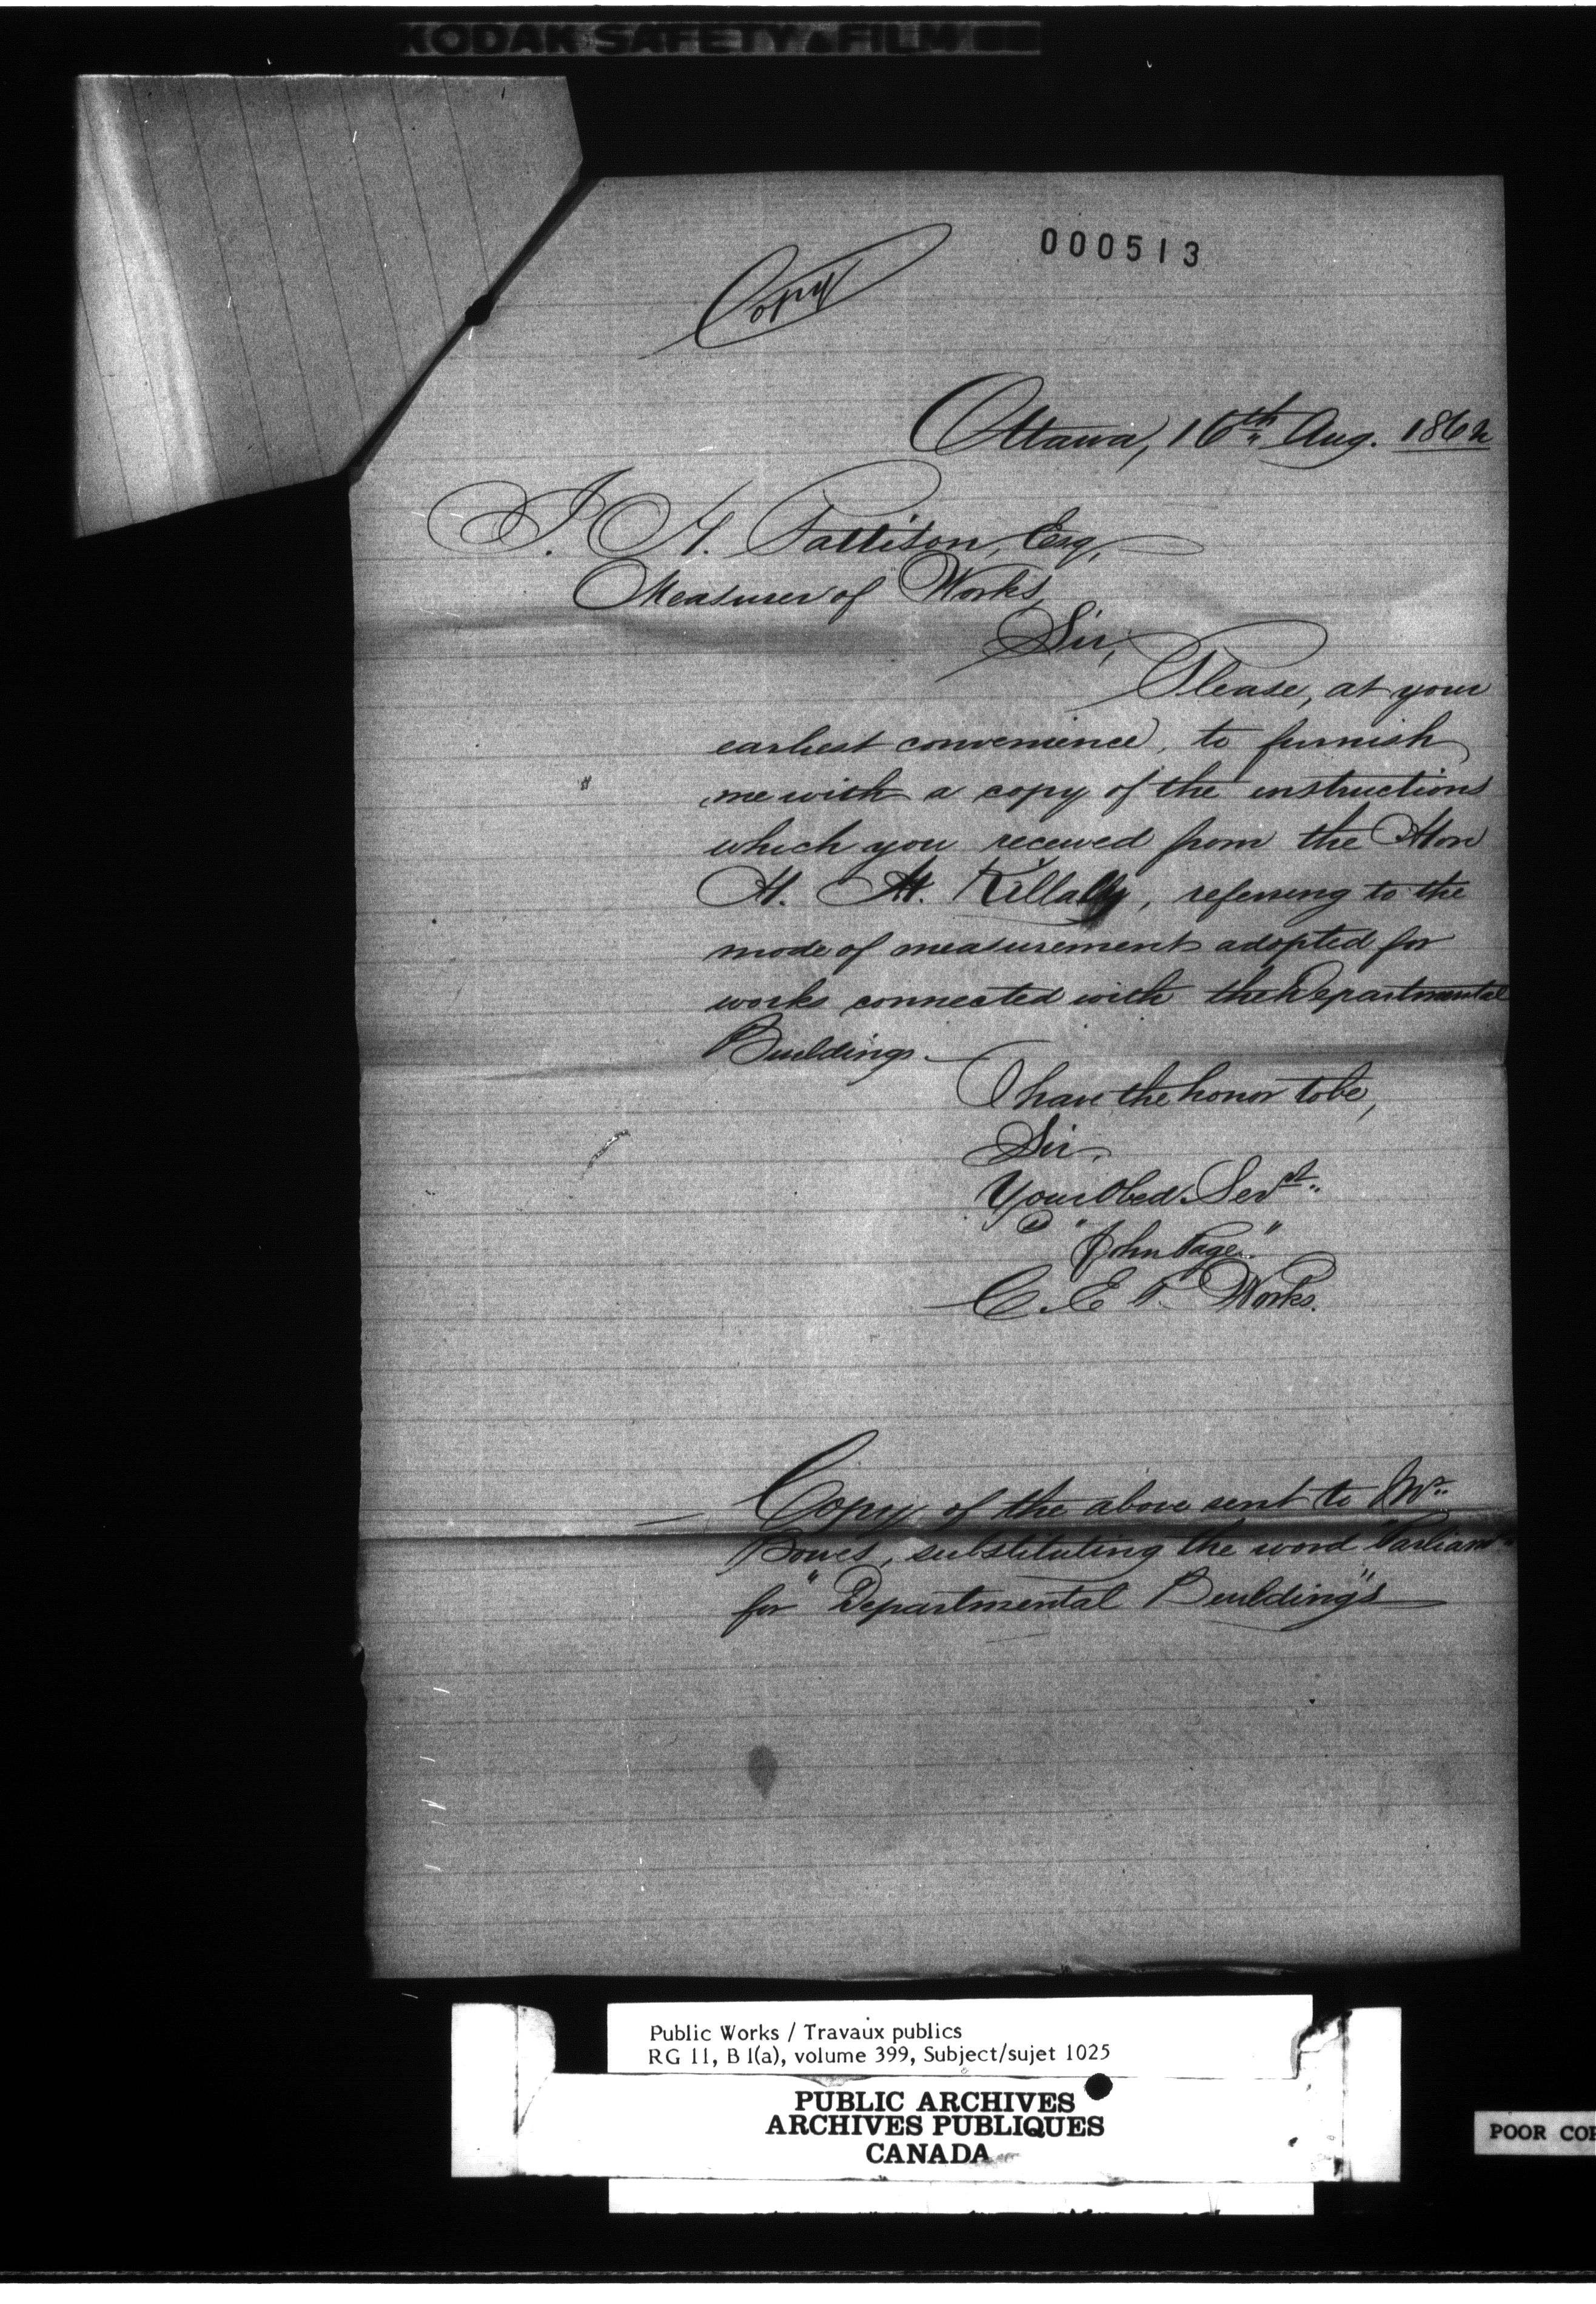 KODAK SAFETY FILM
000513
Copy
Ottawa, 16th Aug. 1862
J. H. Pattison, Esq,
Measurer of Works,
Sir,
Please, at your
earliest convenience, to furnish
me with a copy of the instructions
which you received from the Hon
H. H. Killaly, referring to the
mode of measurement adopted for
works connected with the Departmental
Buildings.
I have the honor to be,
Sir,
Your Obed. Servt.
"John Page"
C. E. P. Works.
Copy of the above sent to Mr.
Bowes, substituting the word "Parliamt."
for "Departmental Buildings"
Public Works / Travaux publics
RG 11, B 1(a), volume 399, Subject/sujet 1025
PUBLIC ARCHIVES
ARCHIVES PUBLIQUES
CANADA
POOR COP